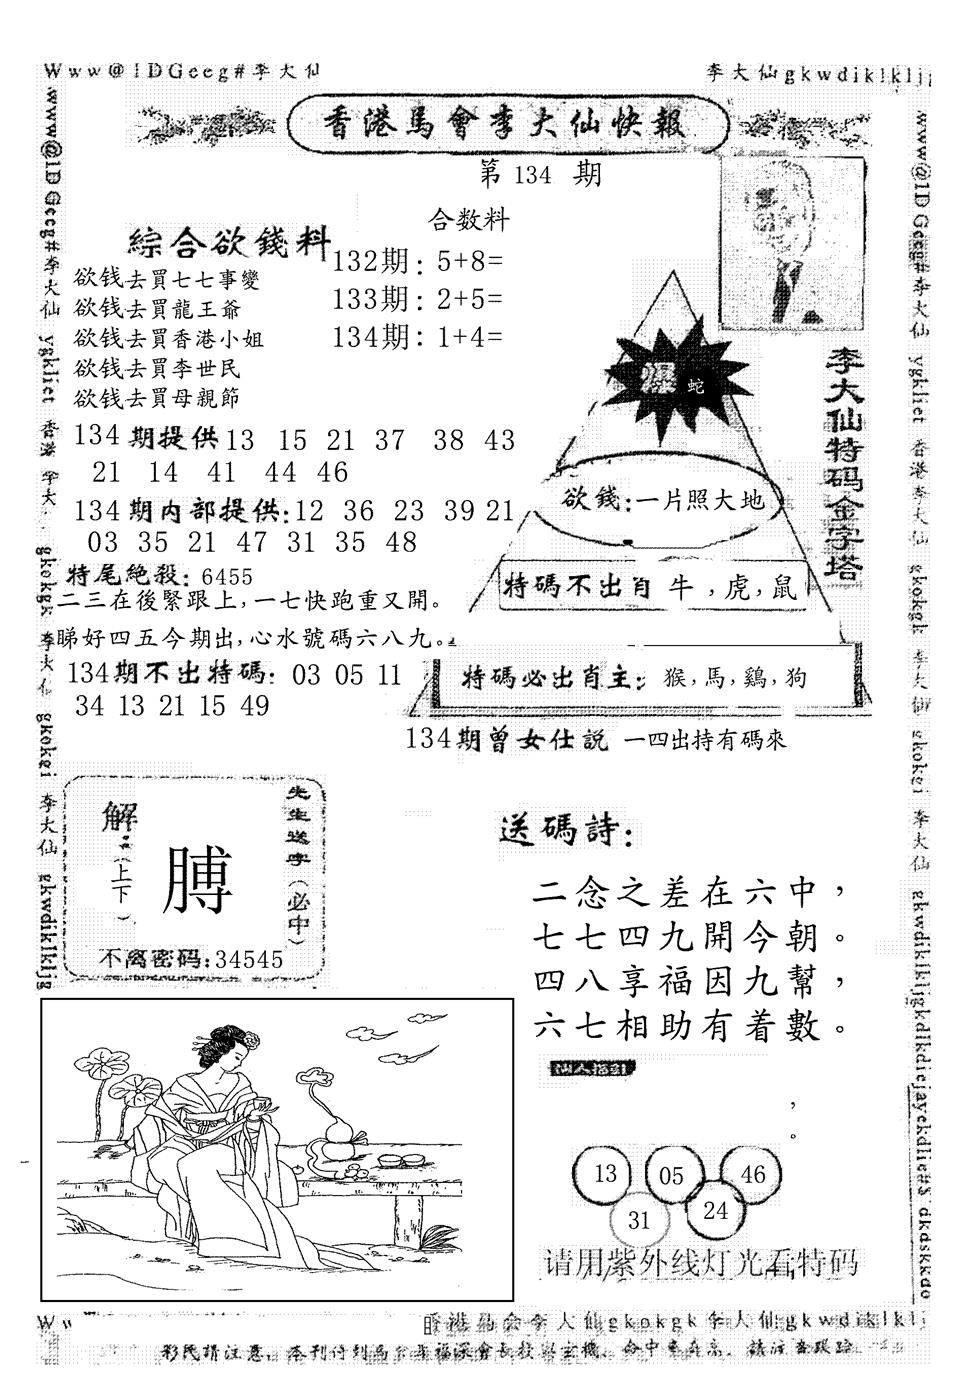 Www@1DGeeg#李大仙
李大仙gkwdiklklj
香港馬會李大仙快報
第134 期
綜合欲錢料
合数料
132期: 5+8=
133期: 2+5=
134期: 1+4=
欲钱去買七七事變
欲钱去買龍王爺
欲钱去買香港小姐
欲钱去買李世民
欲钱去買母親節
134期提供13 15 21 37 38 43
21 14 41 44 46
134期内部提供:12 36 23 39 21
03 35 21 47 31 35 48
特尾絶殺: 6455
二三在後緊跟上,一七快跑重又開。
睇好四五今期出,心水號碼六八九。
134期不出特碼: 03 05 11
34 13 21 15 49
李大仙特码金字塔
爆 蛇
欲錢:一片照大地
特碼不出肖 牛,虎,鼠
特碼必出肖主: 猴,馬,鷄,狗
134期曾女仕説 一四出持有碼來
先生送字(必中)
解:(上下)
膊
不离密码:34545
送碼詩:
二念之差在六中,
七七四九開今朝。
四八享福因九幫,
六七相助有着數。
仙人指路
,
。
13 05 46
31 24
请用紫外线灯光看特码
www@1DGeeg#李大仙 ygkliet 香港李大 gkokgk 李大仙 gkokei 李大仙 gkwdiklkljg
www@1DGeeg#李大仙 ygkliet 香港李大仙 gkokgk 李大仙 gkokei 李大仙
香港馬会李大仙gkokgk李大仙gkwdiklklj
彩民請注意,本刊